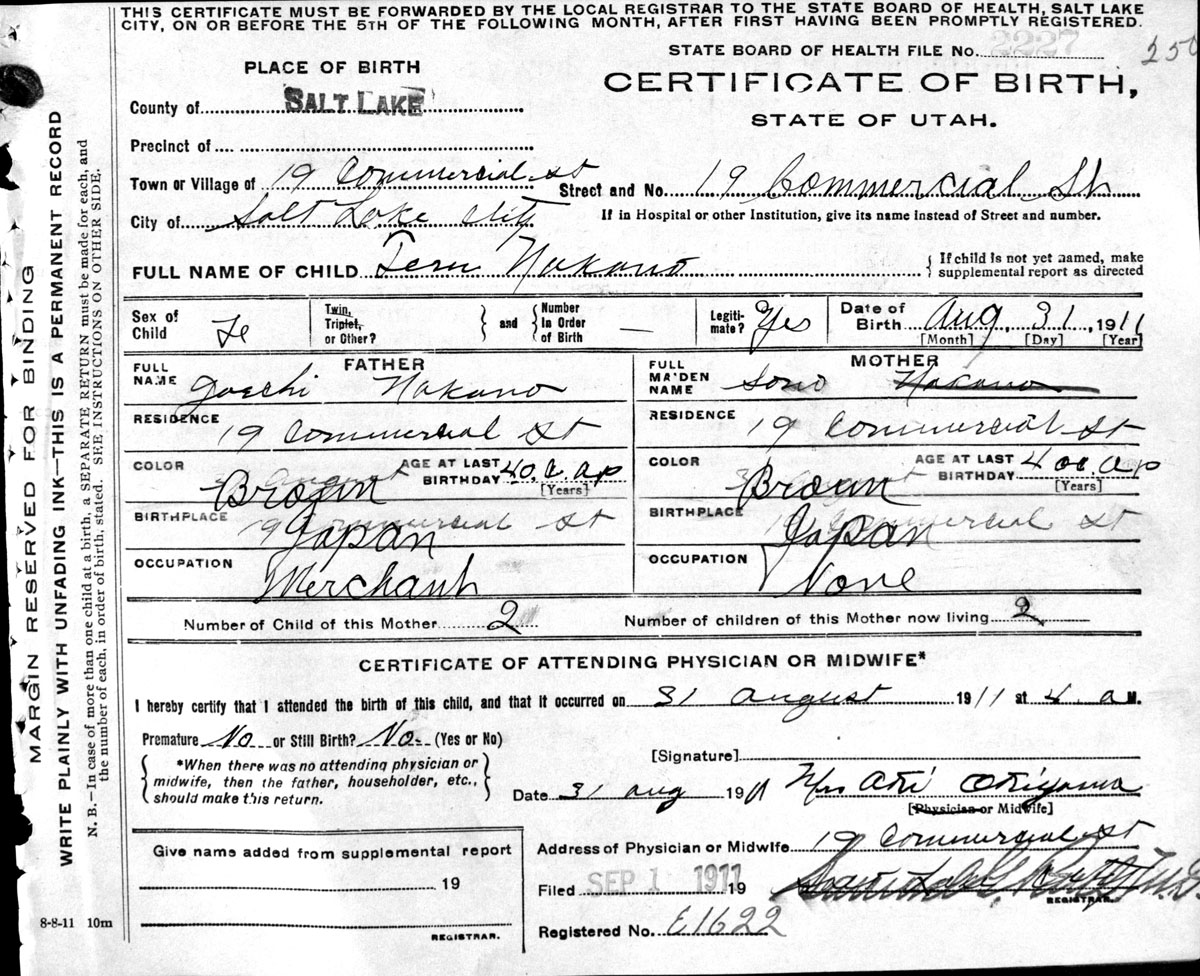 THIS CERTIFICATE MUST BE FORWARDED BY THE LOCAL REGISTRAR TO THE STATE BOARD OF HEALTH, SALT LAKE
CITY, ON OR BEFORE THE 5TH OF THE FOLLOWING MONTH, AFTER FIRST HAVING BEEN PROMPTLY REGISTERED.
STATE BOARD OF HEALTH FILE No. 2227
PLACE OF BIRTH
CERTIFICATE OF BIRTH,
STATE OF UTAH.
County of SALT LAKE
Precinct of
Town or Village of 19 Commercial st
Street and No. 19 Commercial St
City of Salt Lake City
If in Hospital or other Institution, give its name instead of Street and number.
FULL NAME OF CHILD Teru Nakano
{ If child is not yet named, make
supplemental report as directed
Sex of Child Fe
Twin, Triplet, or Other? } and { Number In Order of Birth —
Legiti-mate? Yes
Date of Birth Aug. 31, 1911
[Month] [Day] [Year]
FATHER
MOTHER
FULL NAME Nakano
FULL MAIDEN NAME Sono Nakano
RESIDENCE 19 Commercial st
RESIDENCE 19 Commercial st
COLOR Brown AGE AT LAST BIRTHDAY 40
[Years]
COLOR Brown AGE AT LAST BIRTHDAY 40
[Years]
BIRTHPLACE Japan
BIRTHPLACE Japan
OCCUPATION Merchant
OCCUPATION None
Number of Child of this Mother 2
Number of children of this Mother now living 2
CERTIFICATE OF ATTENDING PHYSICIAN OR MIDWIFE*
I hereby certify that I attended the birth of this child, and that it occurred on 31 august 1911 at 4 a M.
Premature No or Still Birth? No (Yes or No)
{ *When there was no attending physician or
midwife, then the father, householder, etc.,
should make this return. }
[Signature]
Date 31 aug 1911 Mrs Akiyama
[Physician or Midwife]
Give name added from supplemental report
19
REGISTRAR.
Address of Physician or Midwife 19 Commercial st
Filed SEP 1 1911 19
REGISTRAR.
Registered No. E1622
8-8-11 10m
MARGIN RESERVED FOR BINDING
WRITE PLAINLY WITH UNFADING INK—THIS IS A PERMANENT RECORD
N. B.—In case of more than one child at a birth, a SEPARATE RETURN must be made for each, and
the number of each, in order of birth, stated. SEE INSTRUCTIONS ON OTHER SIDE.